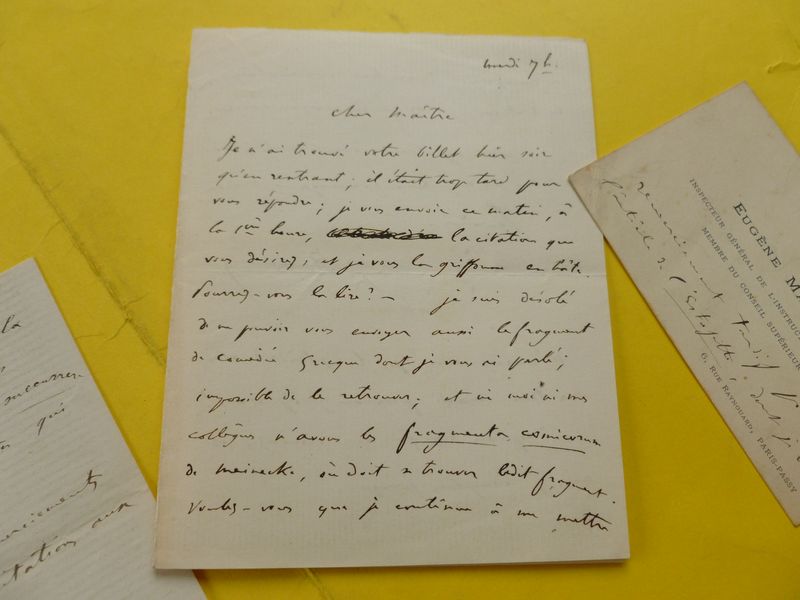 mardi 7 h.
cher Maître
Je n'ai trouvé votre billet hier soir
qu'en rentrant; il était trop tard pour
vous répondre; je vous envoie ce matin, à
la 1ère heure, la citation que
vous désirez; et je vous la griffonne en hâte.
Pourrez-vous la lire? — je suis désolé
de ne pouvoir vous envoyer aussi le fragment
de comédie Grecque dont je vous ai parlé;
impossible de le retrouver; et ni moi ni mes
collègues n'avons les fragmenta comicorum
de meinecke, où doit se trouver ledit fragment.
Voulez-vous que je continue à me mettre
la
succurrere
qui
citations aux
EUGÈNE MA
INSPECTEUR GÉNÉRAL DE L'INSTRUC
MEMBRE DU CONSEIL SUPÉRIEUR
remerciement tardif
l'article de l'Estafette, dont
6, RUE RAYNOUARD, PARIS-PASSY